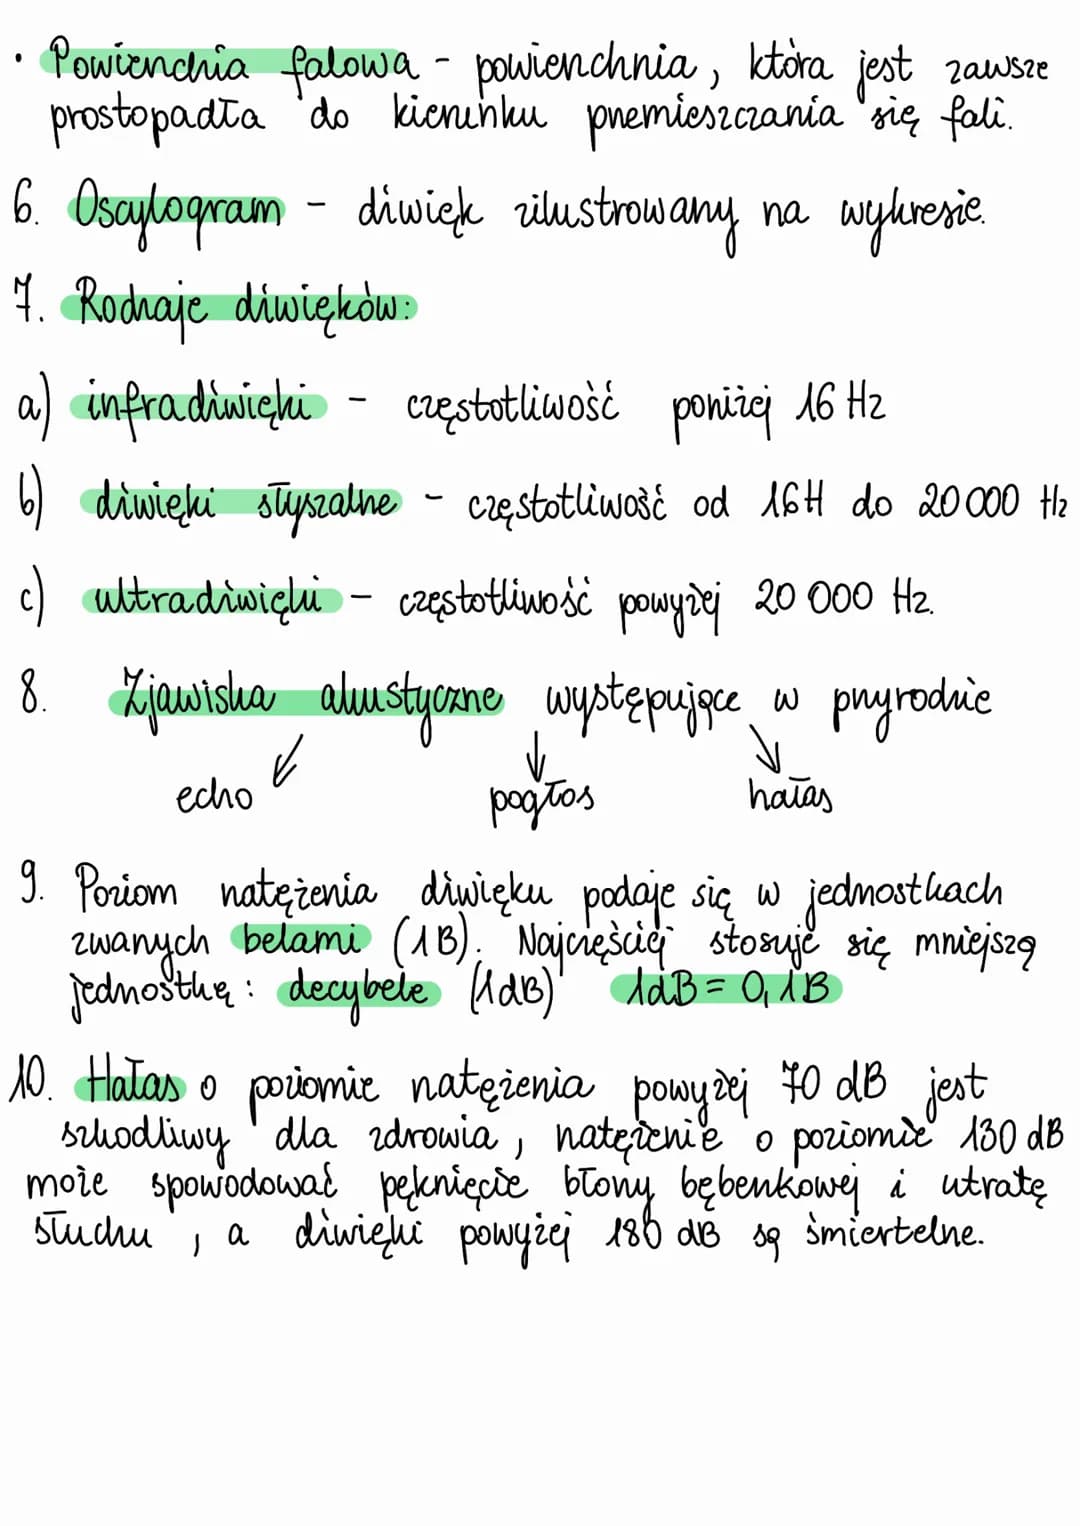 • Powierzchia falowa - powierzchnia, która jest zawsze
prostopadła do kierunku przemieszczania się fali.
6. Oscylogram - dźwięk zilustrowany na wykresie.
7. Rodzaje dźwięków:
a) infradźwięki - częstotliwość poniżej 16 Hz
b) dźwięki słyszalne - częstotliwość od 16H do 20 000 Hz
c) ultradźwięki - częstotliwość powyżej 20 000 Hz.
8. Zjawiska akustyczne występujące w przyrodzie
↓ ↓ ↓
echo pogłos hałas
9. Poziom natężenia dźwięku podaje się w jednostkach
zwanych belami (1B). Najczęściej stosuje się mniejszą
jednostkę: decybele (1dB) 1dB = 0,1B
10. Hałas o poziomie natężenia powyżej 70 dB jest
szkodliwy dla zdrowia, natężenie o poziomie 130 dB
może spowodować pęknięcie błony bębenkowej i utratę
słuchu, a dźwięki powyżej 180 dB są śmiertelne.